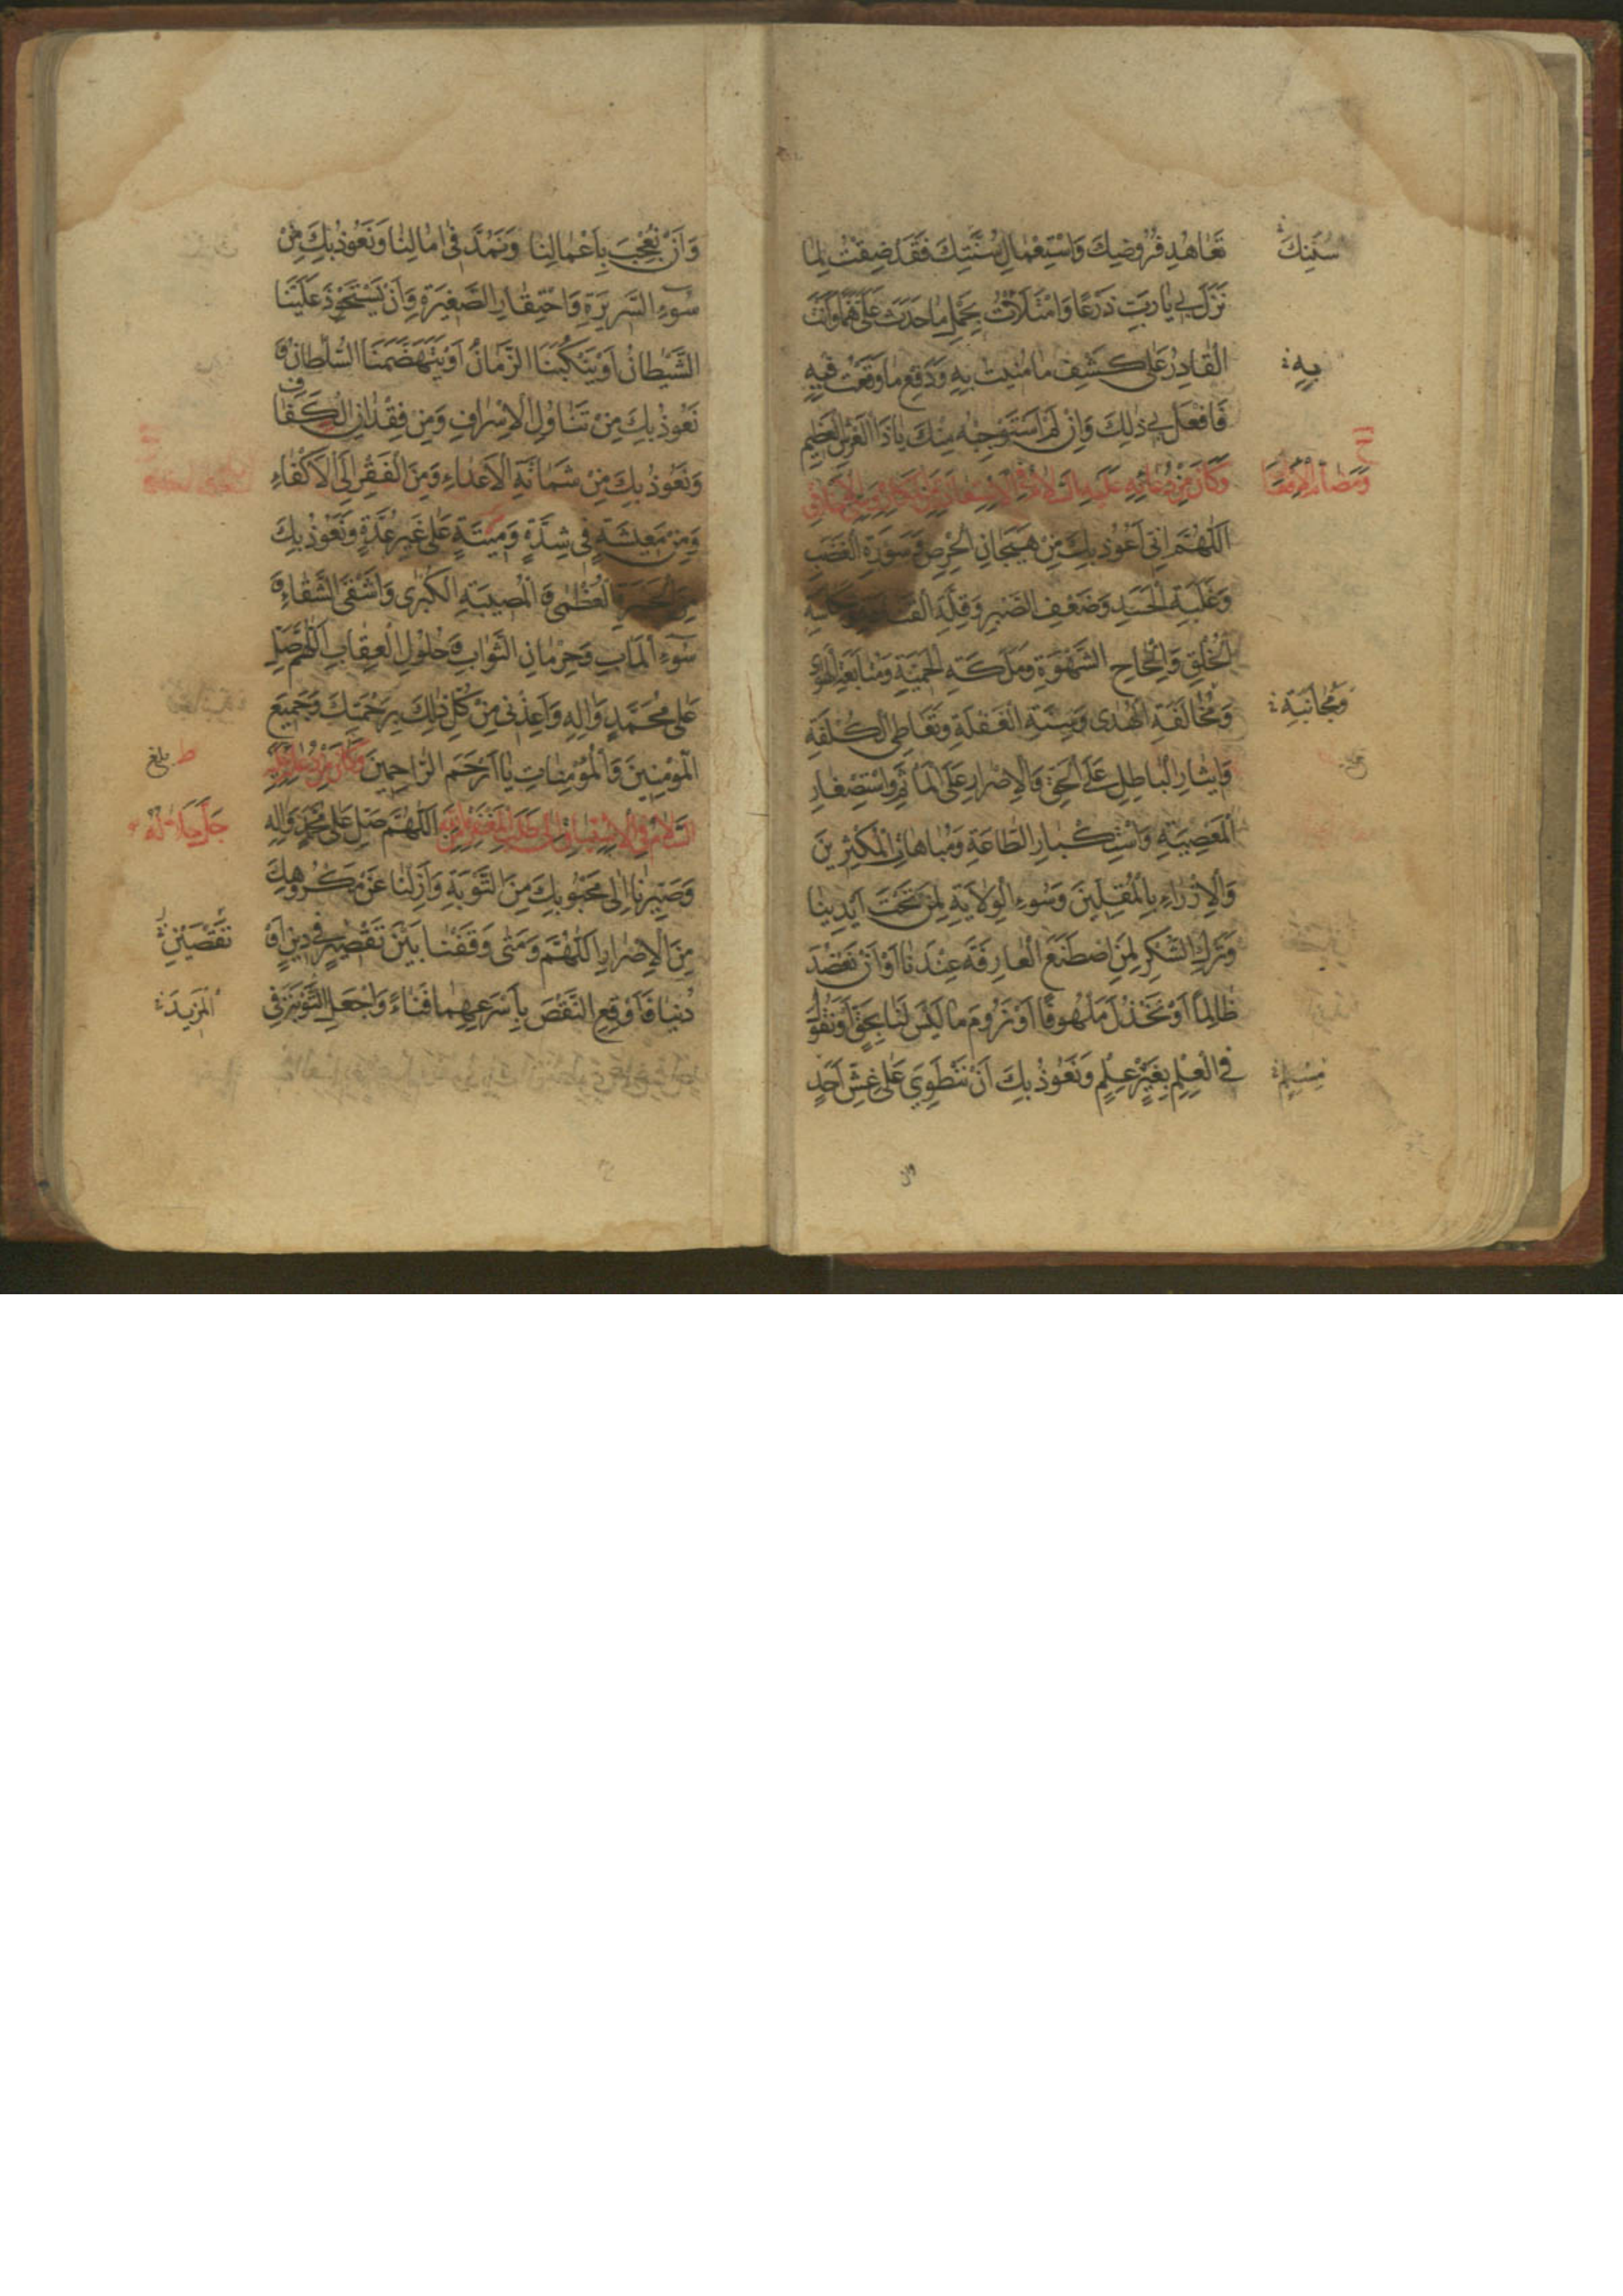 تَعَاهُدِ فُرُوضِكَ وَاسْتِعْمَالِ سُنَّتِكَ فَقَدْ ضِقْتُ لِمَا
سُنَنِكَ
نَزَلَ بِي يَا رَبِّ ذَرْعًا وَامْتَلَأْتُ بِحَمْلِ مَا حَدَثَ عَلَيَّ هَمًّا وَأَنْتَ
الْقَادِرُ عَلَى كَشْفِ مَا مُنِيتُ بِهِ وَدَفْعِ مَا وَقَعْتُ فِيهِ
بِهِ
فَافْعَلْ بِي ذَلِكَ وَإِنْ لَمْ أَسْتَوْجِبْهُ مِنْكَ يَا ذَا الْعَرْشِ الْعَظِيمِ
وَكَانَ مِنْ دُعَائِهِ عَلَيْهِ السَّلَامُ فِي الْاِسْتِعَاذَةِ مِنَ الْمَكَارِهِ وَسَيِّئِ الْأَخْلَاقِ
وَمَذَامِّ الْأَفْعَالِ
اَللّٰهُمَّ إِنِّي أَعُوذُ بِكَ مِنْ هَيَجَانِ الْحِرْصِ وَسَوْرَةِ الْغَضَبِ
وَغَلَبَةِ الْحَسَدِ وَضَعْفِ الصَّبْرِ وَقِلَّةِ الْقَنَاعَةِ وَشَكَاسَةِ
الْخُلُقِ وَإِلْحَاحِ الشَّهْوَةِ وَمَلَكَةِ الْحَمِيَّةِ وَمُتَابَعَةِ الْهَوَى
وَمُخَالَفَةِ الْهُدَى وَسِنَةِ الْغَفْلَةِ وَتَعَاطِي الْكُلْفَةِ
وَمُجَانَبَةِ
وَإِيثَارِ الْبَاطِلِ عَلَى الْحَقِّ وَالْإِصْرَارِ عَلَى الْمَأْثَمِ وَاسْتِصْغَارِ
الْمَعْصِيَةِ وَاسْتِكْبَارِ الطَّاعَةِ وَمُبَاهَاةِ الْمُكْثِرِينَ
وَالْإِزْرَاءِ بِالْمُقِلِّينَ وَسُوءِ الْوِلَايَةِ لِمَنْ تَحْتَ أَيْدِينَا
وَتَرْكِ الشُّكْرِ لِمَنِ اصْطَنَعَ الْعَارِفَةَ عِنْدَنَا أَوْ أَنْ نَعْضُدَ
ظَالِمًا أَوْ نَخْذُلَ مَلْهُوفًا أَوْ نَرُومَ مَا لَيْسَ لَنَا بِحَقٍّ أَوْ نَقُولَ
فِي الْعِلْمِ بِغَيْرِ عِلْمٍ وَنَعُوذُ بِكَ أَنْ نَنْطَوِيَ عَلَى غِشِّ أَحَدٍ
مُسْلِمٍ
وان
وَأَنْ نُعْجِبَ بِأَعْمَالِنَا وَنَمُدَّ فِي آمَالِنَا وَنَعُوذُ بِكَ مِنْ
سُوءِ السَّرِيرَةِ وَاحْتِقَارِ الصَّغِيرَةِ وَأَنْ يَسْتَحْوِذَ عَلَيْنَا
الشَّيْطَانُ أَوْ يَنْكُبَنَا الزَّمَانُ أَوْ يَتَهَضَّمَنَا السُّلْطَانُ وَ
نَعُوذُ بِكَ مِنْ تَنَاوُلِ الْإِسْرَافِ وَمِنْ فِقْدَانِ الْكَفَافِ
وَنَعُوذُ بِكَ مِنْ شَمَاتَةِ الْأَعْدَاءِ وَمِنَ الْفَقْرِ إِلَى الْأَكْفَاءِ
وَمِنْ مَعِيشَةٍ فِي شِدَّةٍ وَمِيتَةٍ عَلَى غَيْرِ عُدَّةٍ وَنَعُوذُ بِكَ
مِنَ الْحَسْرَةِ الْعُظْمَى وَالْمُصِيبَةِ الْكُبْرَى وَأَشْقَى الشَّقَاءِ وَ
سُوءِ الْمَآبِ وَحِرْمَانِ الثَّوَابِ وَحُلُولِ الْعِقَابِ اَللّٰهُمَّ صَلِّ
عَلَى مُحَمَّدٍ وَآلِهِ وَأَعِذْنِي مِنْ كُلِّ ذَلِكَ بِرَحْمَتِكَ وَجَمِيعَ
الْمُؤْمِنِينَ وَالْمُؤْمِنَاتِ يَا أَرْحَمَ الرَّاحِمِينَ وَكَانَ مِنْ دُعَائِهِ عَلَيْهِ
ط بلغ
السَّلَامُ فِي الْاِشْتِيَاقِ إِلَى طَلَبِ الْمَغْفِرَةِ مِنَ اللّٰهِ اَللّٰهُمَّ صَلِّ عَلَى مُحَمَّدٍ وَآلِهِ
جَلَّ جَلَالُهُ
وَصَيِّرْنَا إِلَى مَحْبُوبِكَ مِنَ التَّوْبَةِ وَأَزِلْنَا عَنْ مَكْرُوهِكَ
مِنَ الْإِصْرَارِ اَللّٰهُمَّ وَمَتَى وَقَفْنَا بَيْنَ تَقْصِيرٍ فِي دِينٍ أَوْ
نَقْصَيْنِ
دُنْيَا فَأَوْقِعِ النَّقْصَ بِأَسْرَعِهِمَا فَنَاءً وَاجْعَلِ التَّوْبَةَ فِي
الْمَزِيدَ